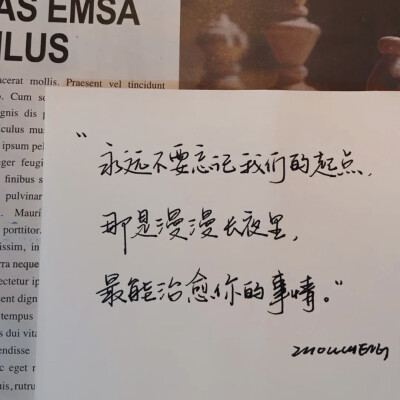 AS EMSA
ILUS
acerat mollis. Praesent vel tincidunt
Cum
gnis dis
culus mus
ipsum pel
eger feugi
finibus s
pulvinar
Mauri
porttitor.
issim, in
rra neque
ectetur ip
sent dign
tempus
s dui vita
endisse
c eget
uis, rutru
“永远不要忘记我们的起点,
那是漫漫长夜里,
最能治愈你的事情。”